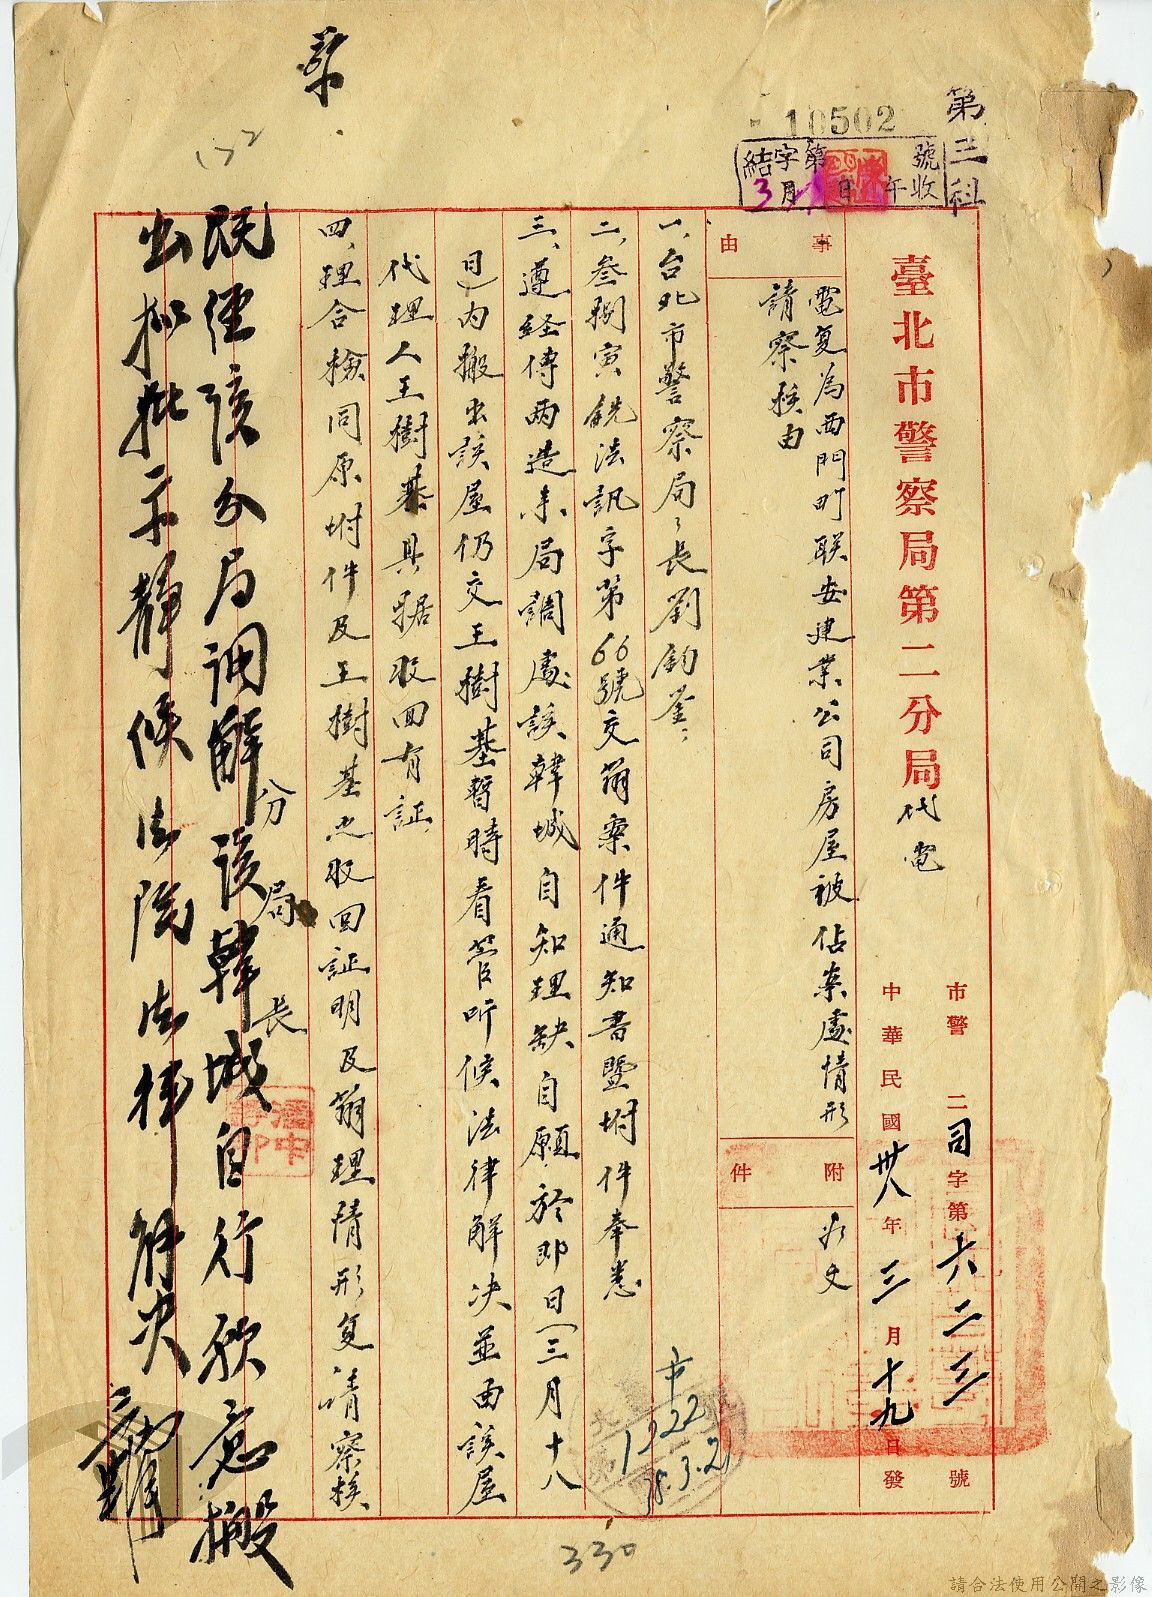 10502
第三科
結字第 號
3月 日 午收
臺北市警察局第二分局代電
市警二司字第六二三號
中華民國卅八年三月十九日發
事由
電复為西門町联安建業公司房屋被佔案處情形
請察核由
附件
为文
一、台北市警察局局長劉鈞鉴：
二、叁捌寅銑法訊字第66號交辦案件通知書暨附件奉悉
三、遵經傳两造来局調處該韓城自知理缺自願於即日（三月十八
日）内搬出該屋仍交王樹基暫時看管听候法律解决並由該屋
代理人王樹基具据收回有証
四、理合檢同原附件及王樹基之收回証明及辦理情形复請察核
分局長
既經該分局調解該韓城自行欣意搬
出擬批示靜候法院法律解决
市
1322
38.3.21
330
132
請合法使用公開之影像